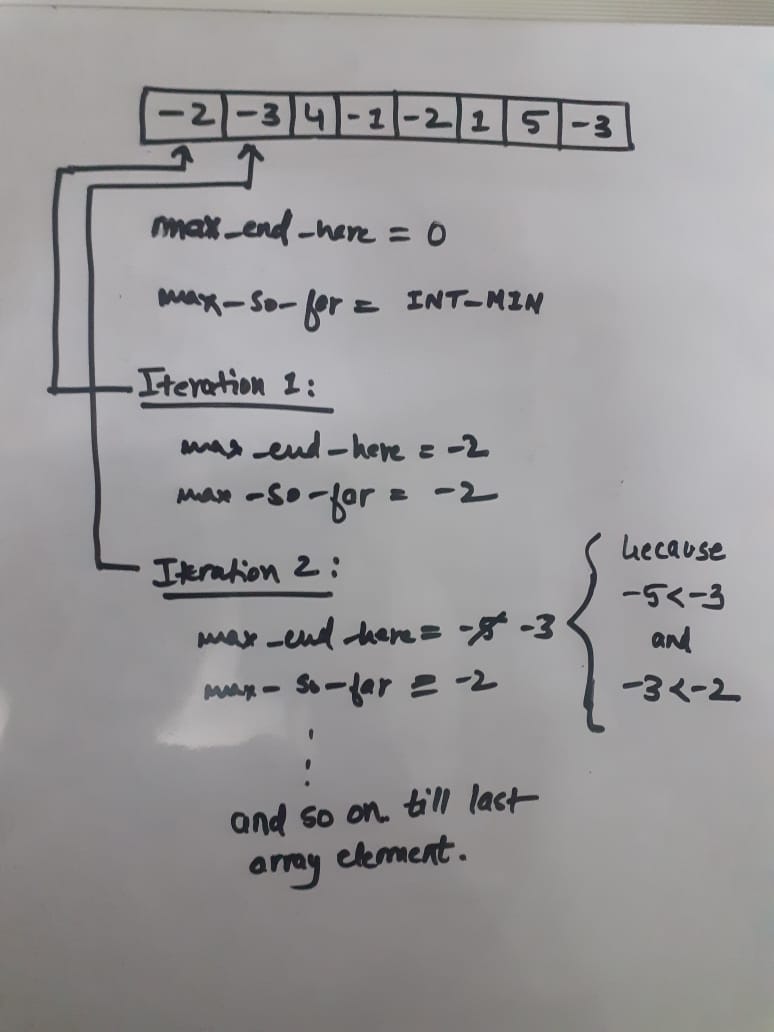 -2 -3 4 -1 -2 1 5 -3
max_end_here = 0
max-so-for = INT_MIN
Iteration 1:
max_end-here = -2
max-so-for = -2
Iteration 2:
max_end_here = -5 -3
max-so-far = -2
because
-5<-3
and
-3<-2
and so on. till last
array element.